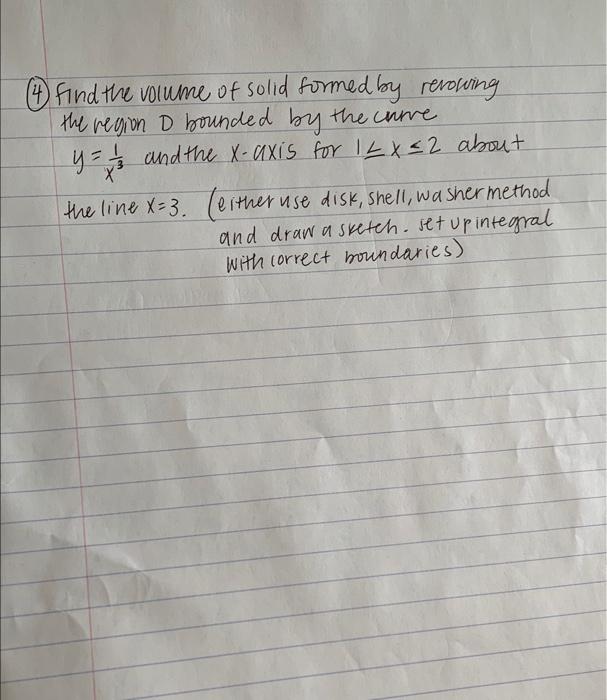 ④ Find the volume of solid formed by revolving
the region D bounded by the curve
y = 1/x³ and the x-axis for 1 ≤ x ≤ 2 about
the line x=3. (either use disk, shell, washer method
and draw a sketch. set up integral
with correct boundaries)